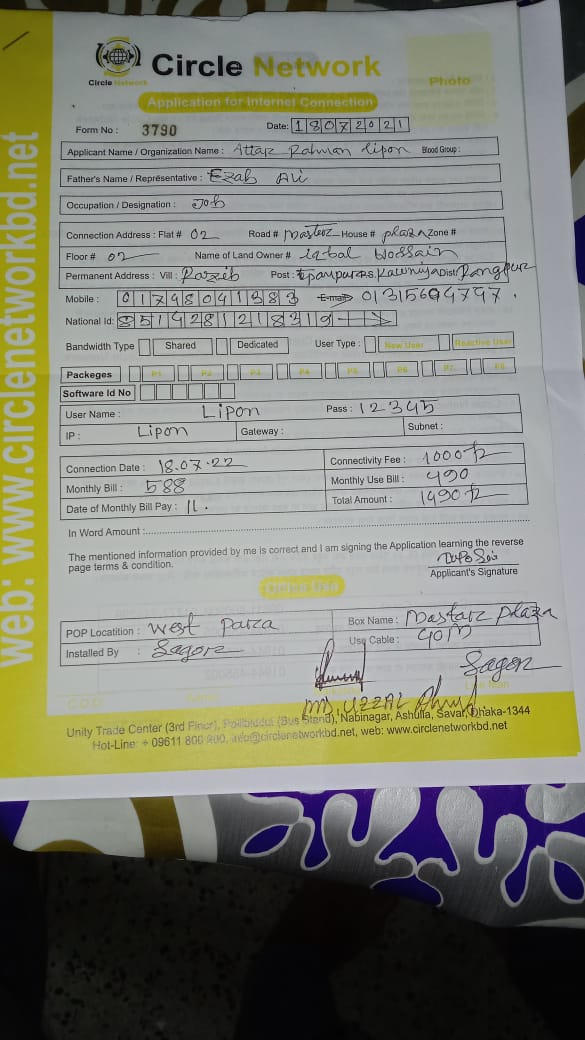 Circle Network
Circle Network
Photo
Application for Internet Connection
Form No : 3790 Date: 18072021
Applicant Name / Organization Name : Attar Rahman Lipon Blood Group :
Father's Name / Representative : Ezab Ali
Occupation / Designation : Job
Connection Address : Flat # 02 Road # Mastarz House # plaza Zone #
Floor # 02 Name of Land Owner # iqbal Hossain
Permanent Address : Vill : Post : Dist : Rangpur
Mobile : 01798041383 E-mail 01315694797.
National Id: 8514281218319
Bandwidth Type Shared Dedicated User Type : New User Reactive User
Packeges P1 P2 P3 P4 P5 P6 P7 P8
Software Id No
User Name : Lipon Pass : 12345
IP : Lipon Gateway : Subnet :
Connection Date : 18.07.22 Connectivity Fee : 1000
Monthly Bill : 588 Monthly Use Bill : 490
Date of Monthly Bill Pay : 11. Total Amount : 1490
In Word Amount :
The mentioned information provided by me is correct and I am signing the Application learning the reverse
page terms & condition.
Applicant's Signature
Official Use
POP Locatition : West Parza Box Name : Mastarz plaza
Installed By : Sagorz Use Cable : 40M
Sagorz
MD. UZZAL
Unity Trade Center (3rd Floor), Pollibiddut (Bus Stand), Nabinagar, Ashulia, Savar, Dhaka-1344
Hot-Line: + 09611 800 900, info@circlenetworkbd.net, web: www.circlenetworkbd.net
web: www.circlenetworkbd.net